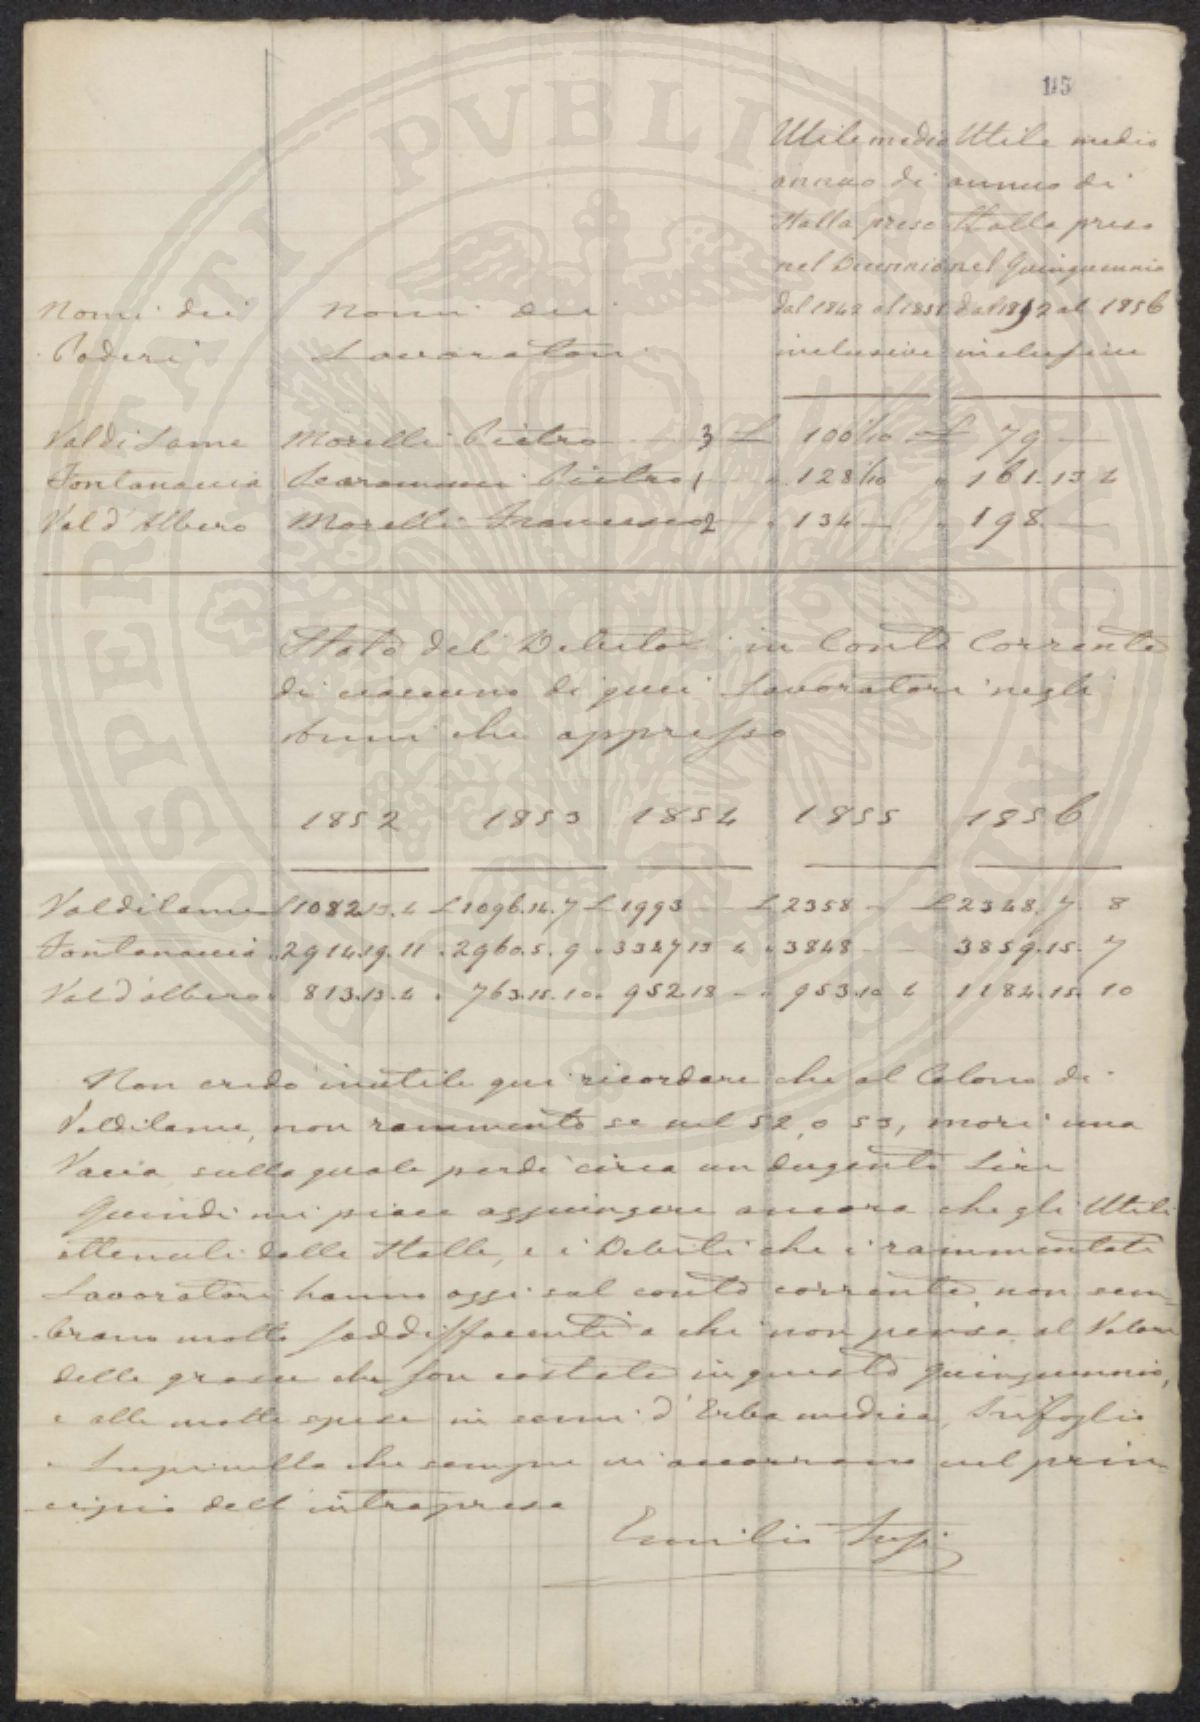 115
Utile medio Utile medio
annuo di annuo di
Stalla preso Stalla preso
nel Decennio nel Quinquennio
Nomi dei Nomi dei dal 1842 al 1851 dal 1852 al 1856
Poderi Lavoratori inclusive inclusive
Valdilame Morelli Pietro — 3 £ 100 1/10 £ 79 —
Fontanaccia Scaramucci Pietro 1 " 128 1/10 " 161.13 4
Val d'Albero Morelli Francesco 2 " 134 — " 198 —
Stato del Debito in Conto Corrente
di ciascuno di quei Lavoratori negli
Anni che appresso
1852 1853 1854 1855 1856
Valdilame £1082.13.4 £1096.14.7 £1993 — £2358 — £2348.7 8
Fontanaccia "2914.19.11 "2960.5.9 "3347 13 4 "3848 — 3859.15.7
Val d'albero " 813.13.4 " 763.15.10 " 952.18 — " 953.10 4 1184.15.10
Non credo inutile qui ricordare che al Colono di
Valdilame, non rammento se nel 52, o 53, morì una
Vacca sulla quale perdì circa un dugento Lire
Quindi mi piace aggiungere ancora che gli Utili
ottenuti dalle Stalle, e i Debiti che i rammentati
Lavoratori hanno oggi sul conto corrente non sem-
brano molto soddisfacenti a chi non pensa al Valore
delle grasce che son costate in questo quinquennio,
e alle molte spese in semi d'Erba medica, Trifoglio
e Lupinella che sempre vi occorrono nel prin-
cipio dell'intrapresa
Emilio